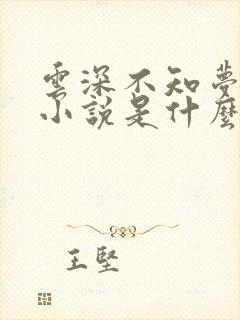 雲深不知夢
小說是什麼
王堅